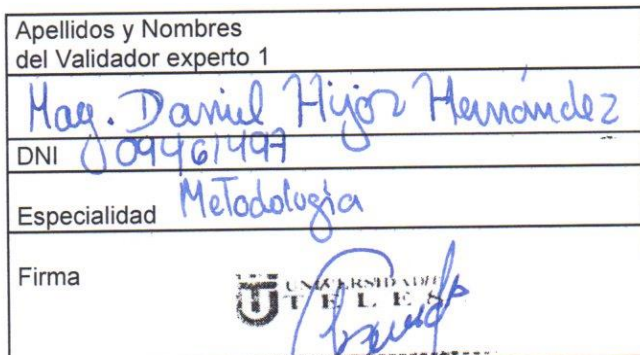 Apellidos y Nombres
del Validador experto 1
Mag. Daniel Hijar Hernández
DNI 09461497
Especialidad Metodología
Firma
UNIVERSIDAD
TELES